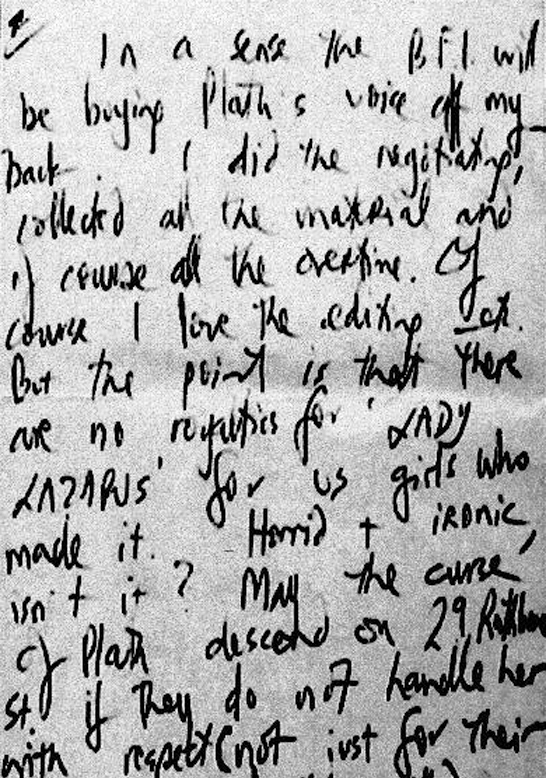 In a sense the BFI will
be buying Plath's voice off my
back. I did the negotiating,
collected all the material and
of course all the overtime. Of
course I love the editing etc.
But the point is that there
are no royalties for 'LADY
LAZARUS' for us girls who
made it. Horrid + ironic,
isn't it? May the curse
of Plath descend on 29 Rathbone
St. if they do not handle her
with respect (not just for their